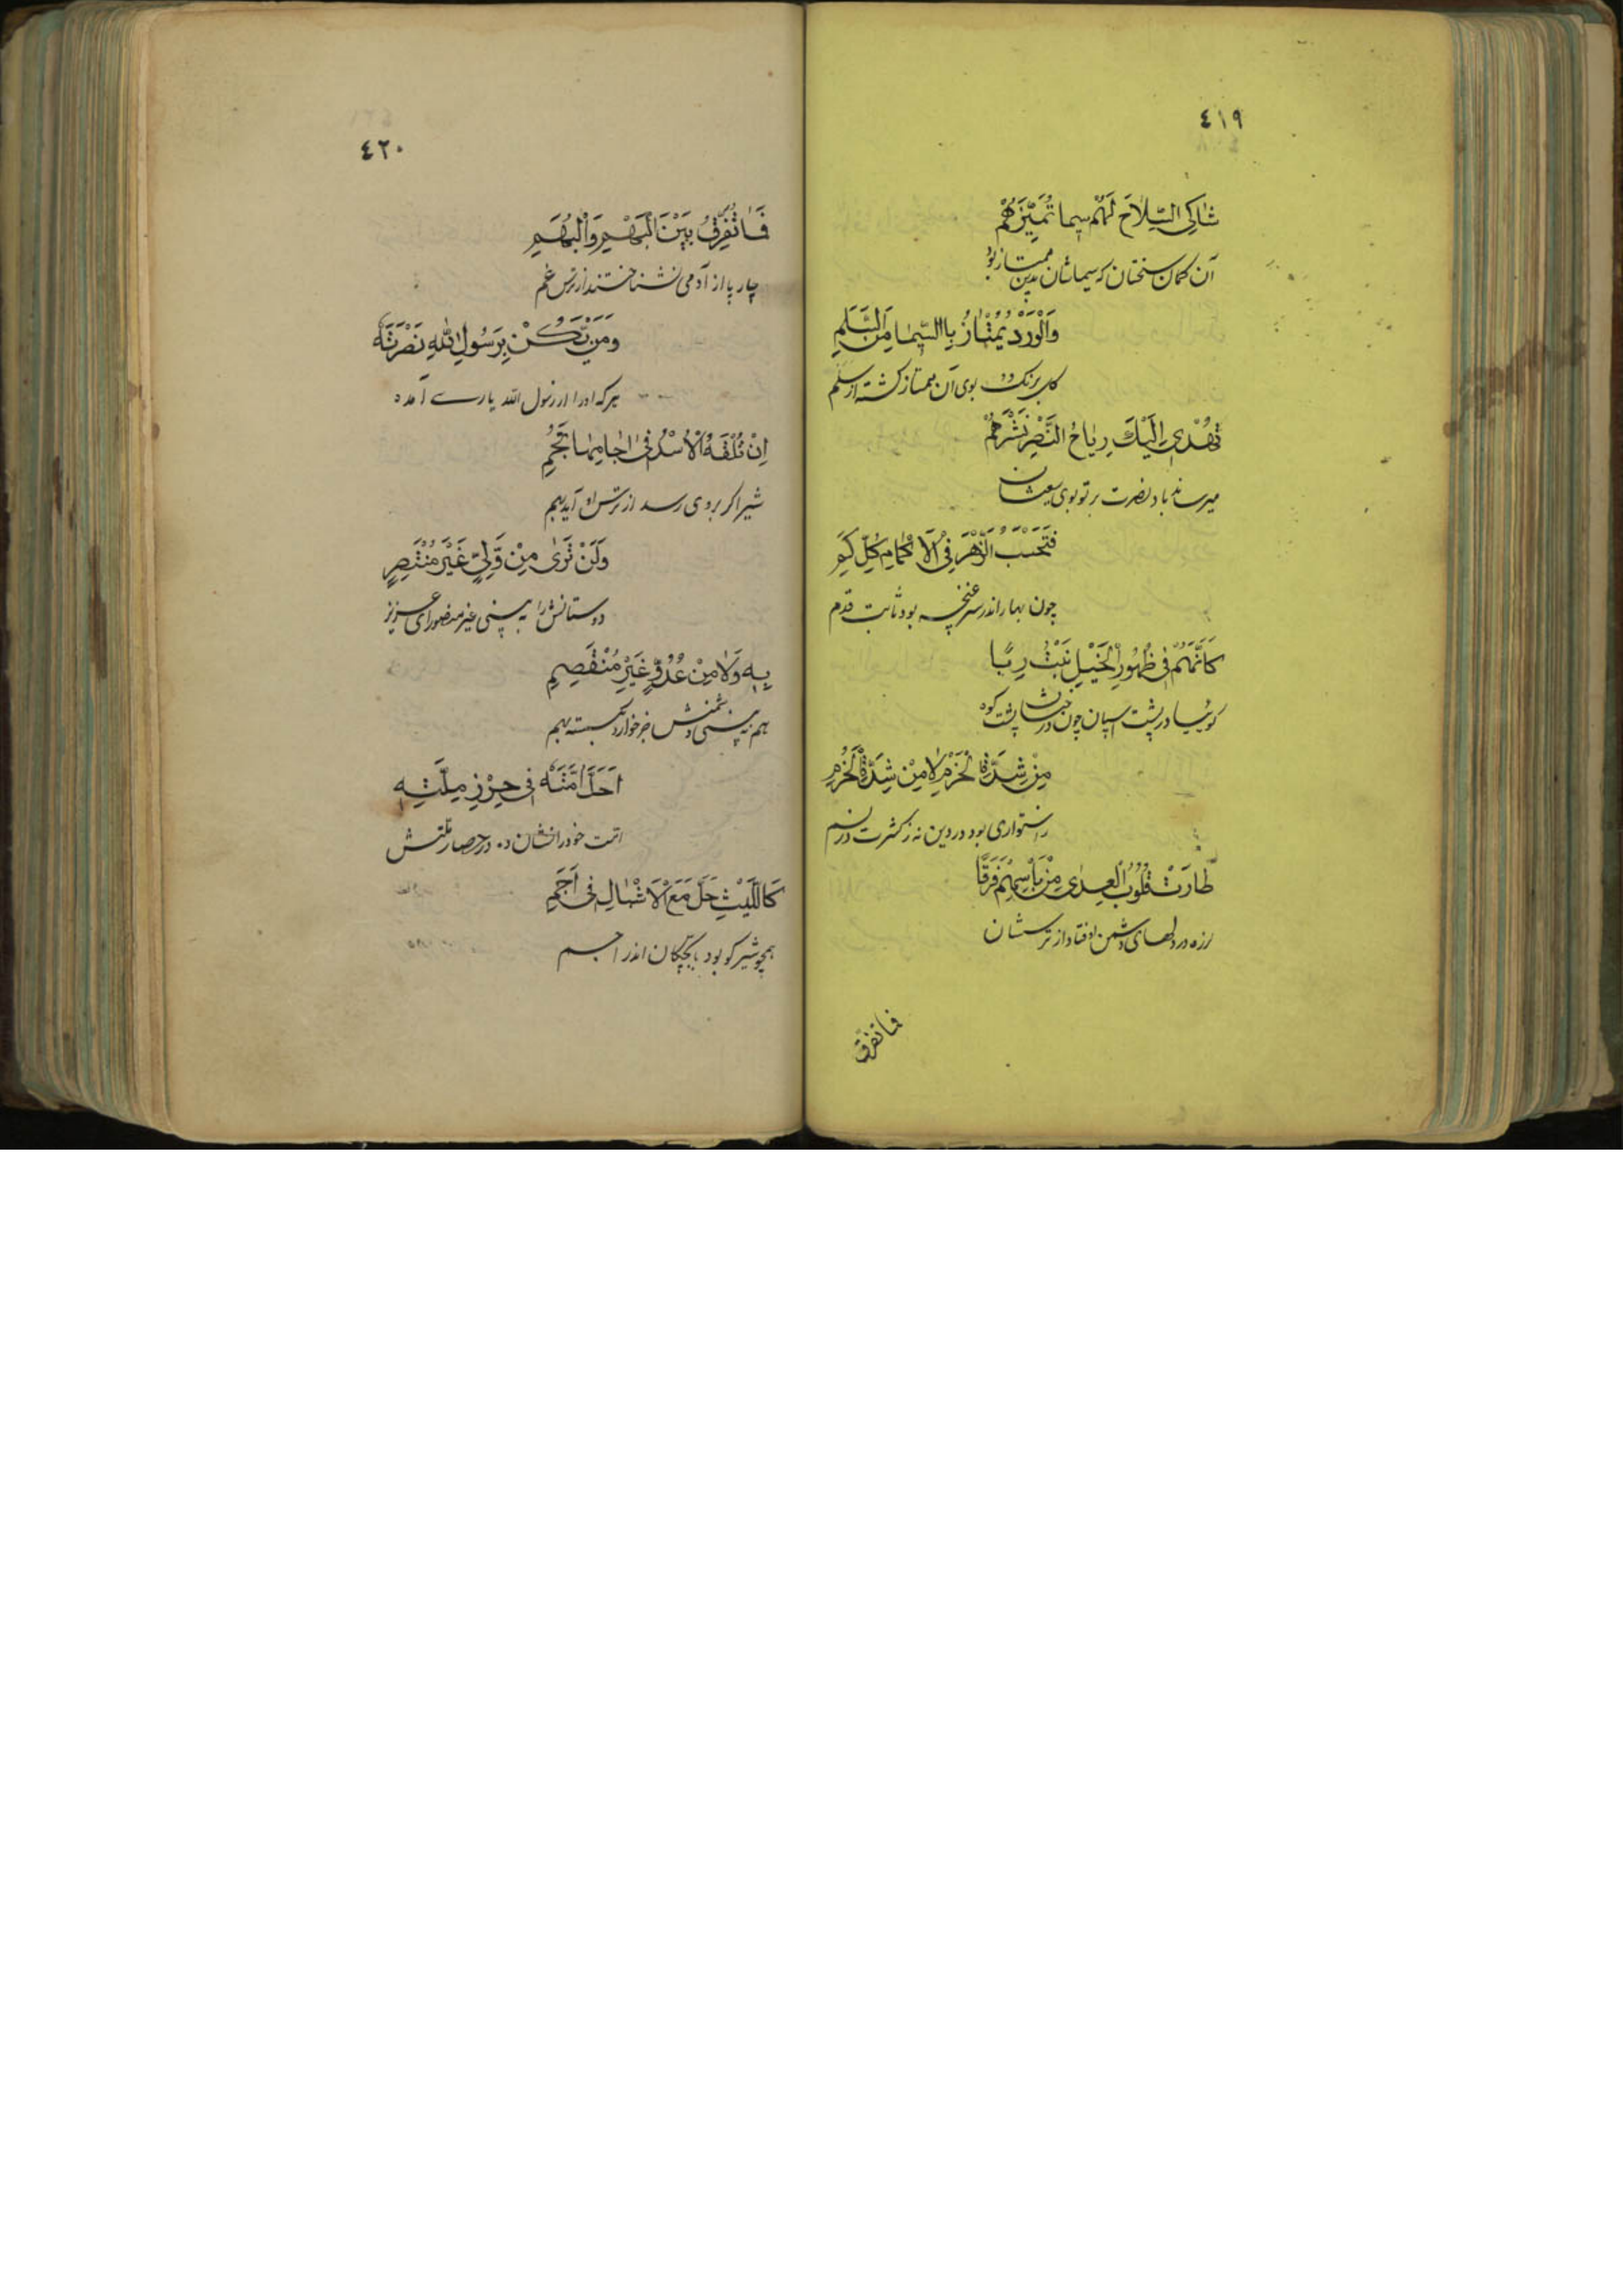 ٤١٩
شَاكِي السِّلَاحِ لَهُمْ سِيمَا تُمَيِّزُهُمْ
آن کسان سختان که سیماشان بدین ممتاز بود
وَالْوَرْدُ يَمْتَازُ بِالسِّيمَا مِنَ السَّلَمِ
کل برنک و بوی آن ممتاز کشته از سلم
تُهْدِي اِلَيْكَ رِيَاحُ النَّصْرِ نَشْرَهُمْ
میرساند باد نصرت بر تو بوی
فَتَحْسَبُ الزَّهْرَ فِي الْاَكْمَامِ كُلَّ كَمِي
چون بهار اندر سر غنچه بود ثابت قدم
كَاَنَّهُمْ فِي ظُهُورِ الْخَيْلِ نَبْتُ رِبًا
کوئیا در پشت اسپان چون درختان پشت کوه
مِنْ شِدَّةِ الْحَزْمِ لَا مِنْ شِدَّةِ الْحُزُمِ
استواری بود در دین نه ز کثرت در
طَارَتْ قُلُوبُ الْعِدٰى مِنْ بَأْسِهِمْ فَرَقًا
لرزه در دلهای دشمن اوفتاد از ترسشان
فما تفرق
٤٢٠
فَمَا تُفَرِّقُ بَيْنَ الْبَهْمِ وَالْبُهَمِ
چار پا از آدمی نشناختند از ترس غم
وَمَنْ يَّكُنْ بِرَسُولِ اللّٰهِ نَصْرَتُهُ
هرکه او را از رسول الله یاری آمده
اِنْ تَلْقَهُ الْاُسْدُ فِي اٰجَامِهَا تَجِمِ
شیر اکر بروی رسد از ترس او آید بهم
وَلَنْ تَرٰى مِنْ وَّلِيٍّ غَيْرَ مُنْتَصِرٍ
دوستانش را نه بینی غیر منصور ای عزیز
بِهِ وَلَا مِنْ عَدُوٍّ غَيْرَ مُنْقَصِمِ
هم نه بینی دشمنش جز خوار و بشکسته بهم
اَحَلَّ اُمَّتَهُ فِي حِرْزِ مِلَّتِهِ
امت خود را نشانده در حصار ملتش
كَاللَّيْثِ حَلَّ مَعَ الْاَشْبَالِ فِي اَجَمِ
همچو شیر کو بود با بچکان اندر اجم